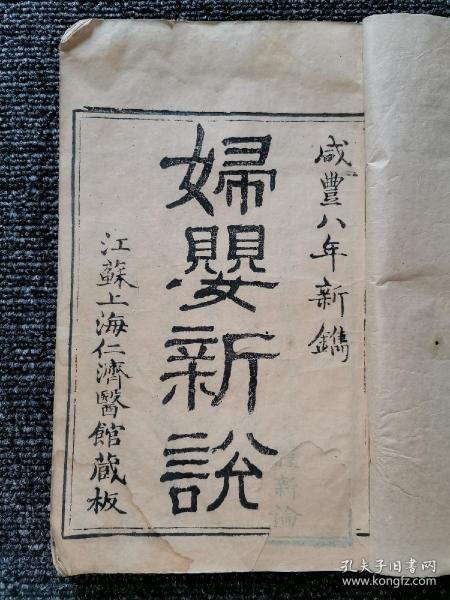 咸豐八年新鐫
婦嬰新說
江蘇上海仁濟醫館藏板
新論
孔夫子旧书网
www.kongfz.com